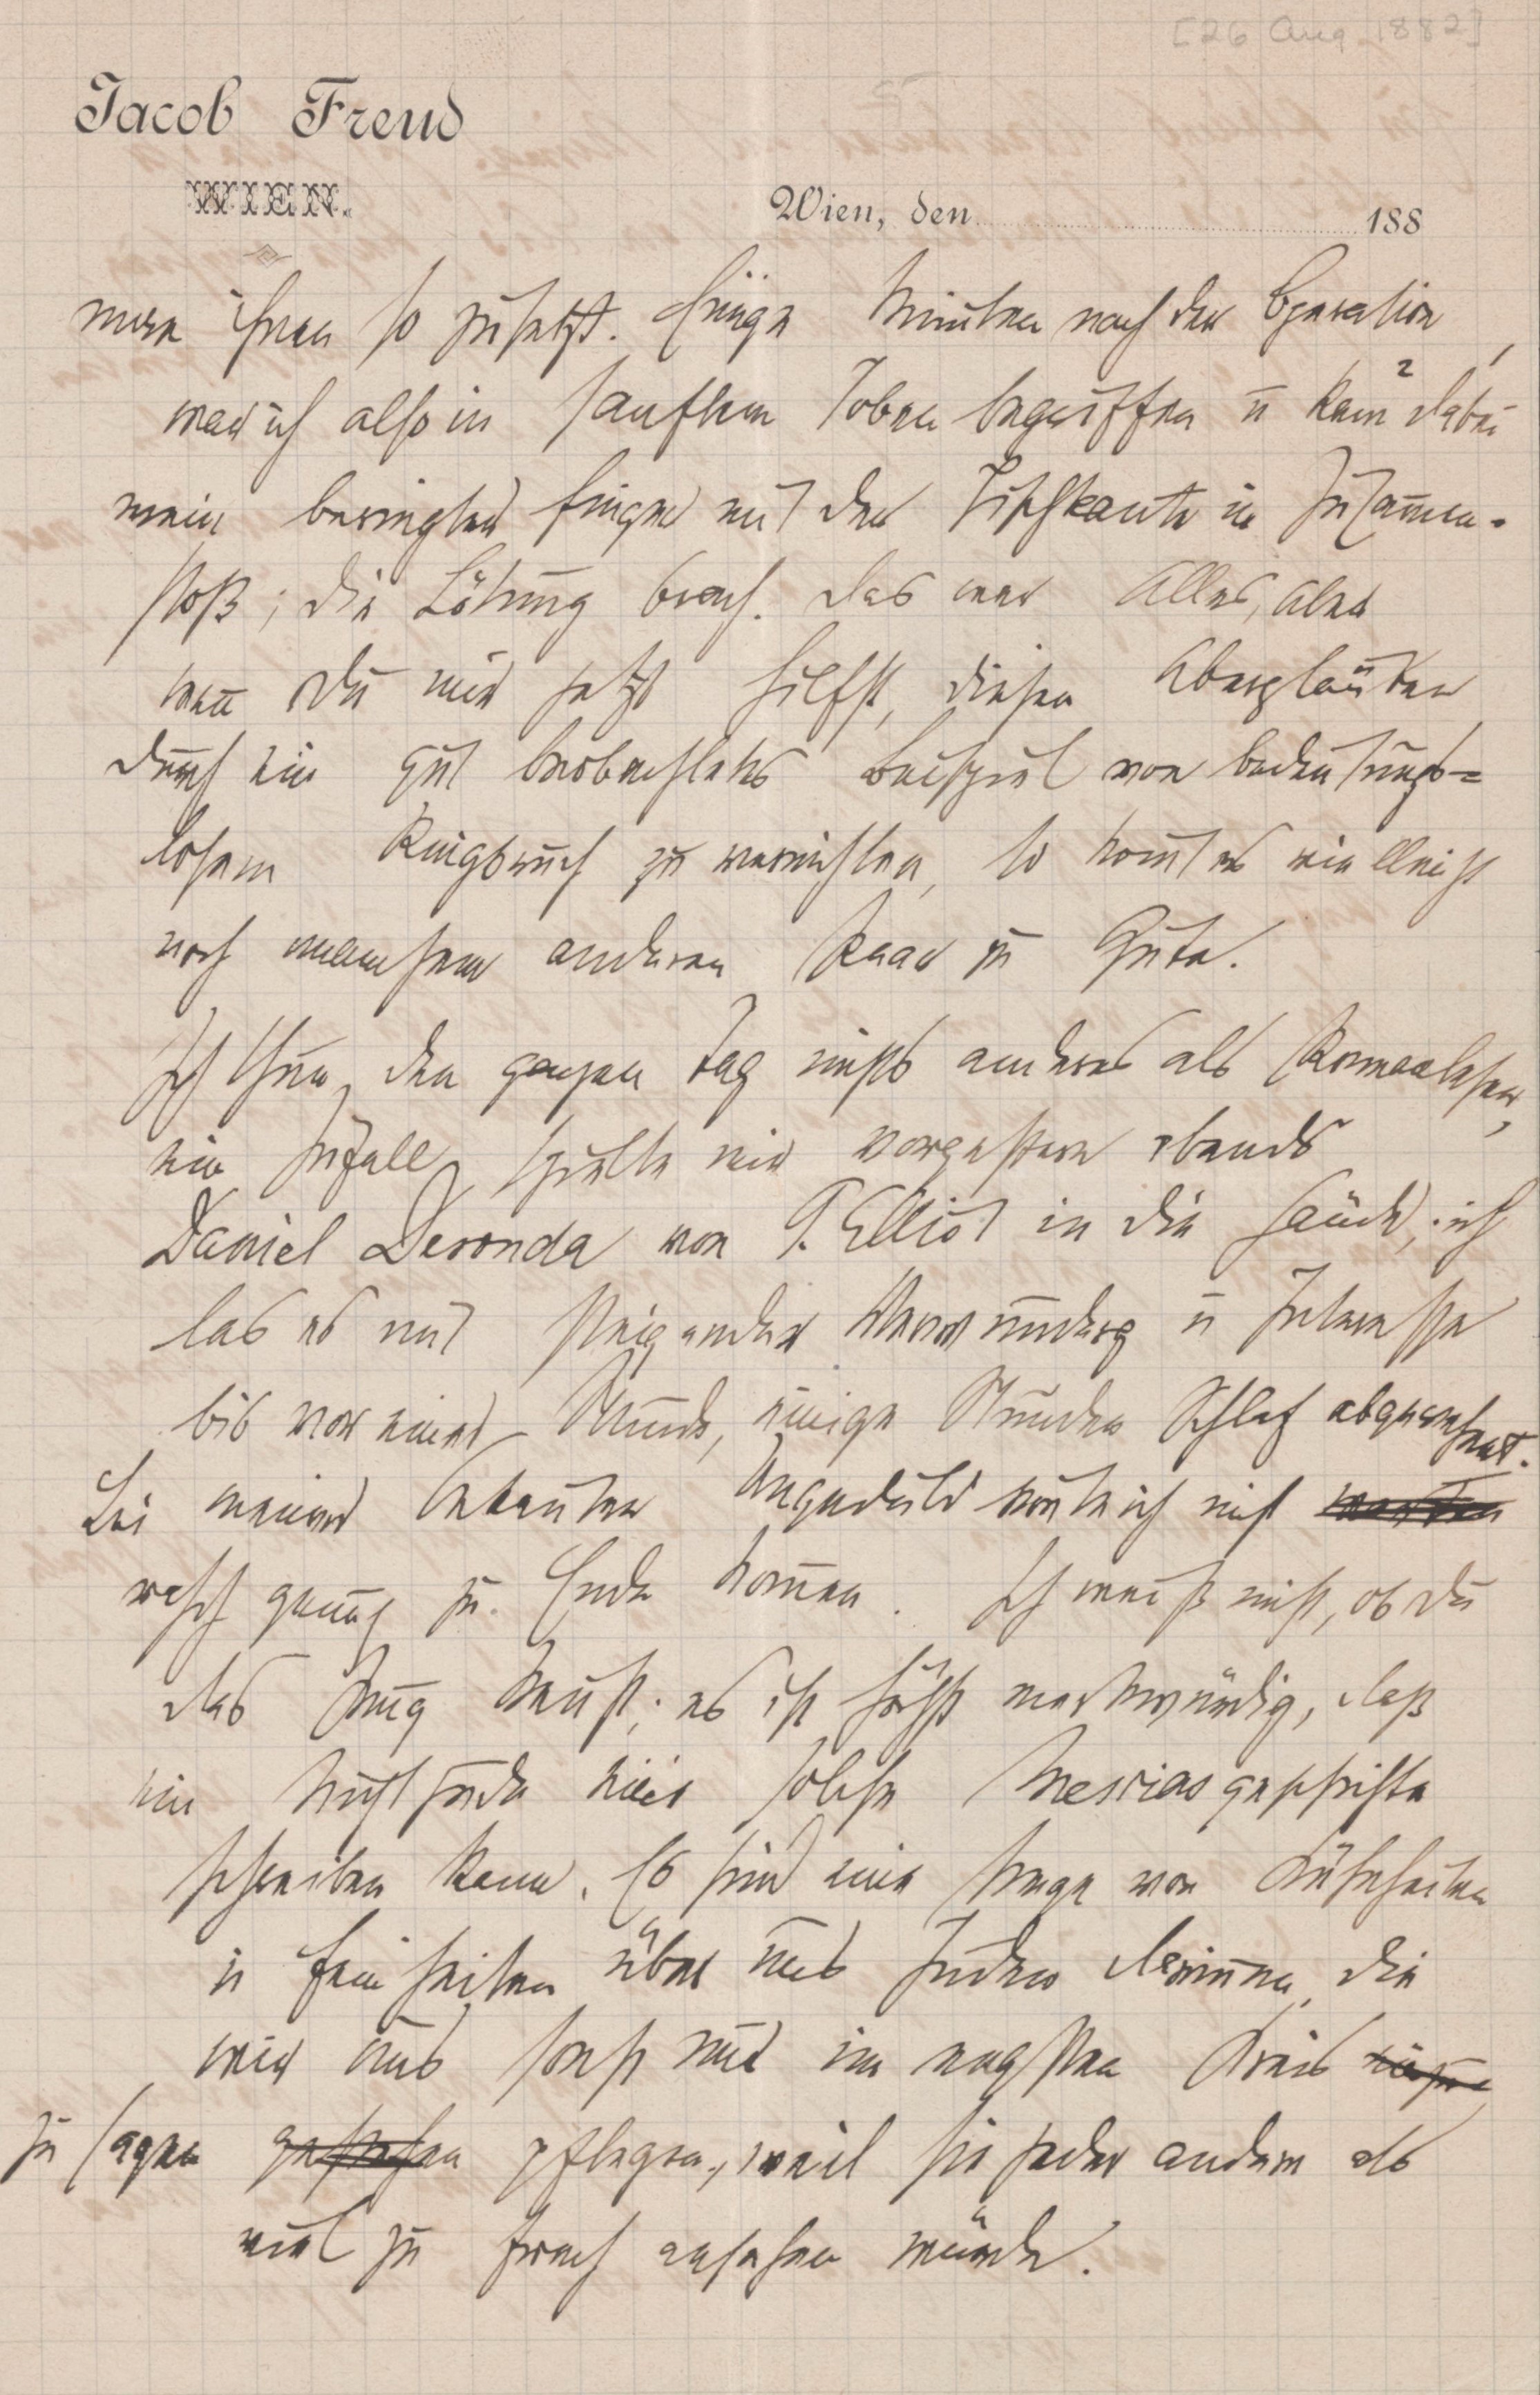 [26 Aug 1882]
Jacob Freud
WIEN.
Wien, den 188
man ihnen so zusetzt. Einige Minuten nach der Operation
war ich also in sanftem Toben begriffen u kam dabei
mein beringter Finger mit der Tischkante in Zusam̅en-
stoß; die Lötung brach. Das war Alles, aber
wen̅ Du mir jetzt hilfst, diesen Aberglauben
durch ein gut beobachtetes Beispiel von bedeutungs=
losem Ringbruch zu vernichten, so kom̅t es vielleicht
noch manchem anderen Paar zu Gute.
Ich thue den ganzen Tag nichts anderes als Romanlesen,
ein Zufall spielte mir vorgestern abends
Daniel Deronda von G. Elliot in die Hände, ich
las es mit steigender Verwunderg u Interesse
bis vor einer Stunde, einige Stunden Schlaf abgerechnet.
Bei meiner bekan̅ten Ungeduld kon̅te ich nicht
rasch genug zu Ende kom̅en. Ich weiß nicht, ob Du
das Ding ken̅st; es ist höchst merkwürdig, daß
ein Nichtjude eine solche Messiasgeschichte
schreiben kann. Es sind eine Menge von Kühnheiten
u Feinheiten über uns Juden darin̅en, die
wir uns sonst nur im engsten Kreis
zu sagen pflegen, weil sie jeder andere als
viel zu frech ansehen würde.